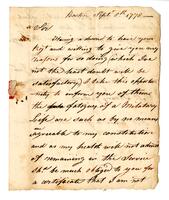 Boston Sept. 8th 1778
Sir
Having a desire to leave your
Regt and willing to give you my
reasons for so doing which I am
not the least doubt will be
satisfactory I take this opportu
nity to inform you of them
the fatigues of a Military
Life are such as by no means
are agreeable to my constitution
and as my health will not admit
of remaining in the Service
shd. be much obliged to you for
a certificate that I am not